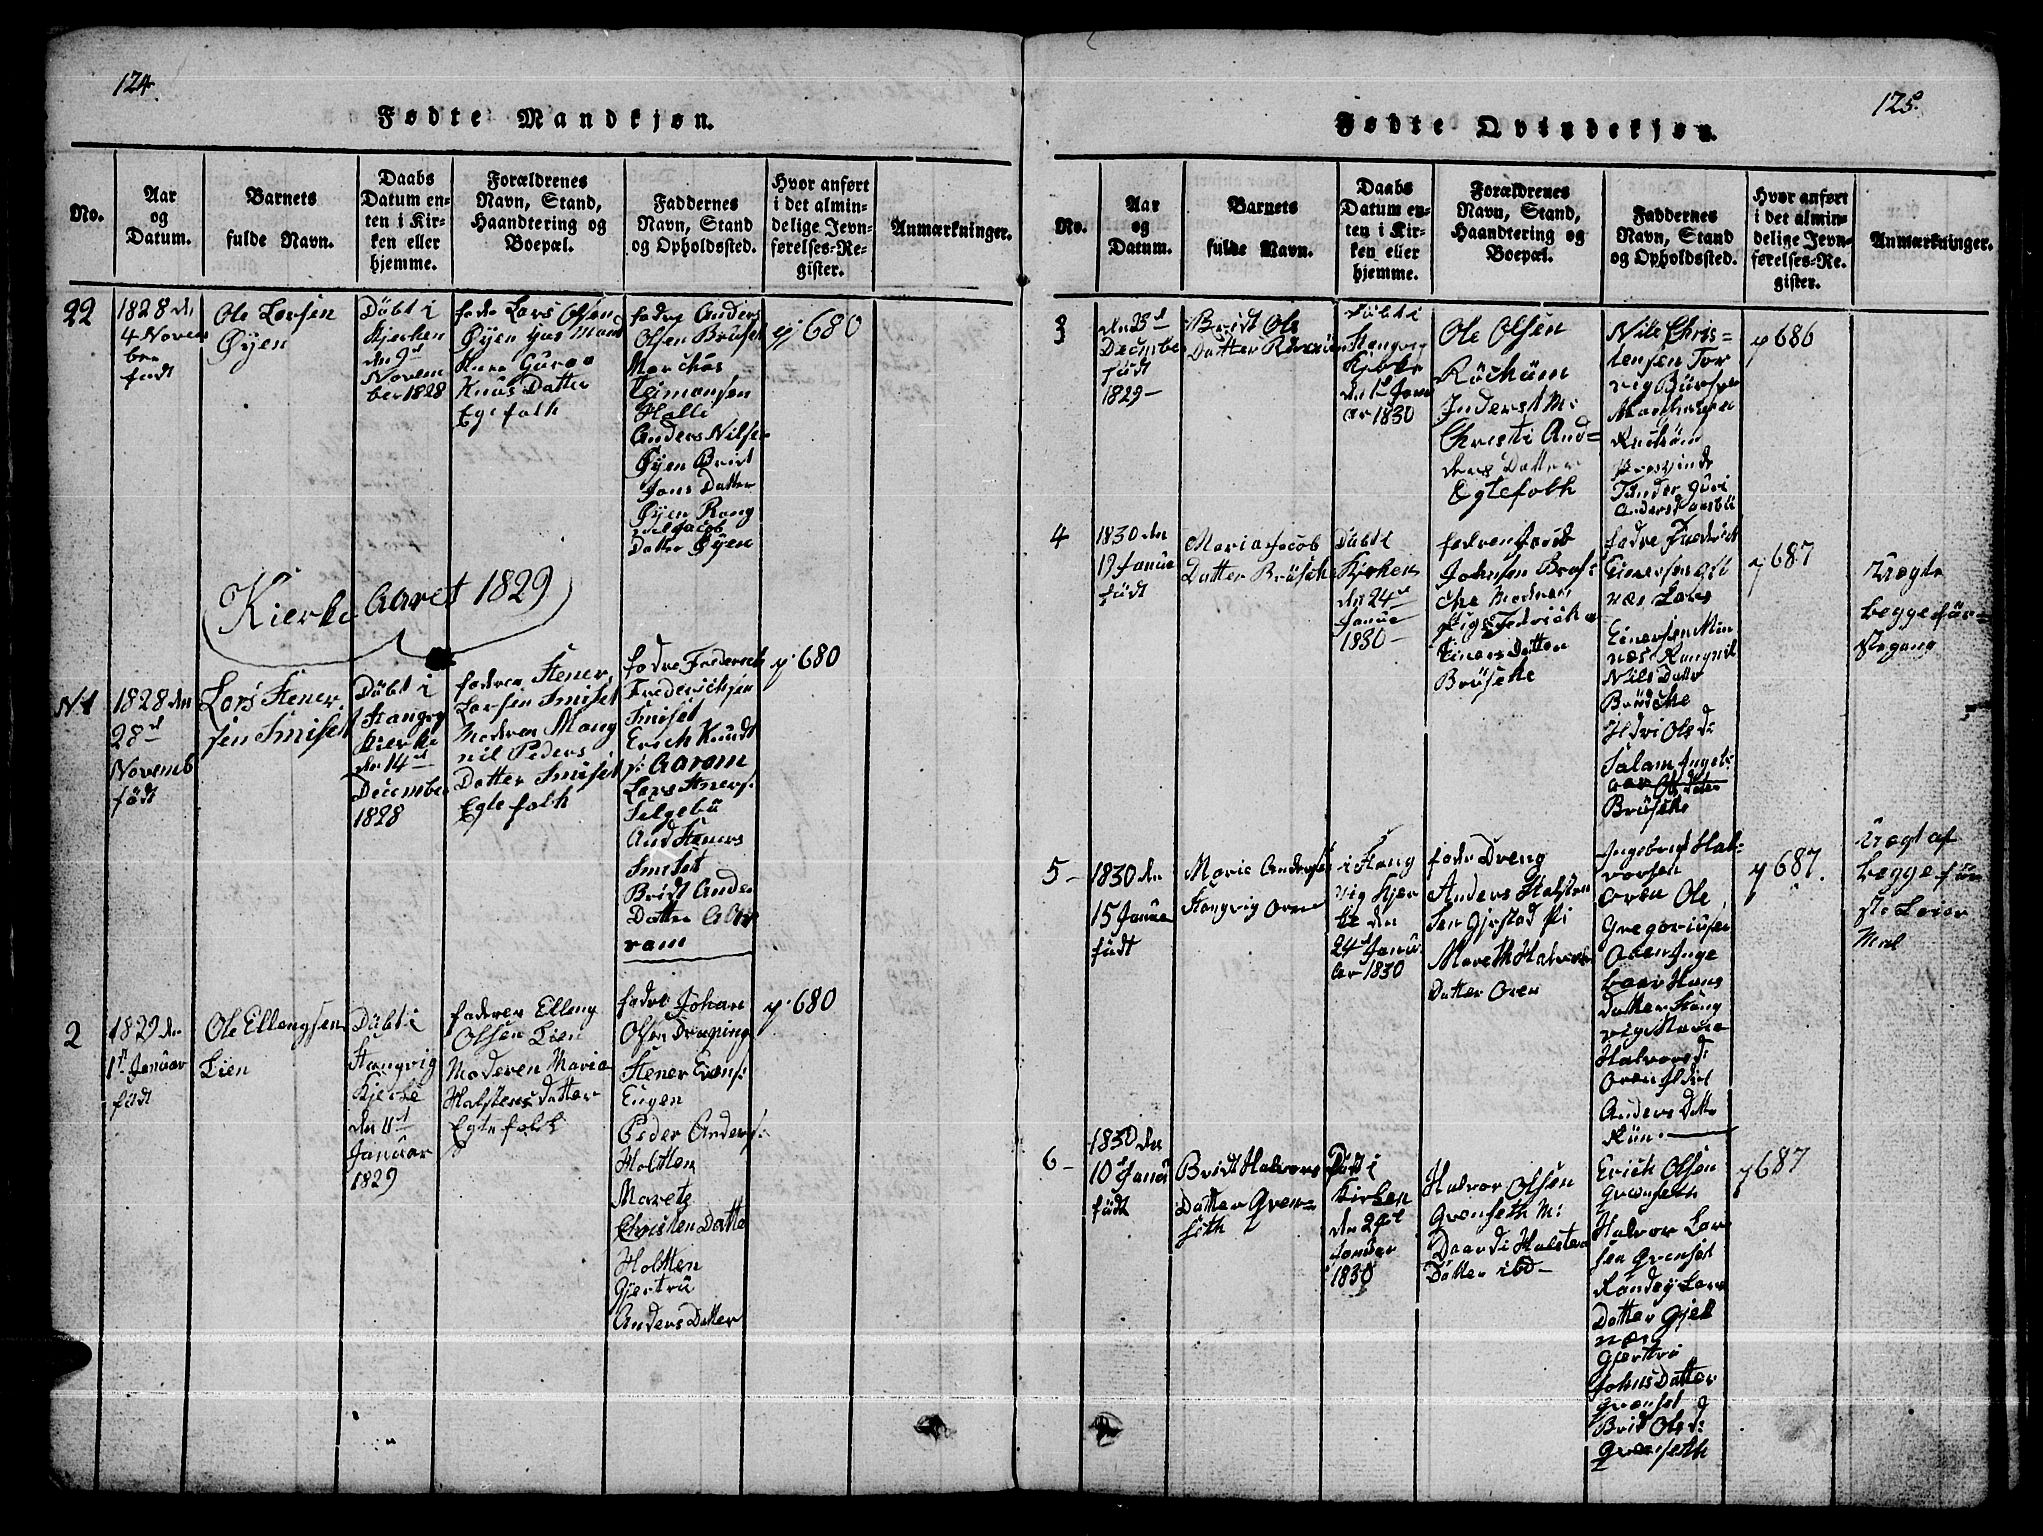 124.
Fødte Mandkjøn.
No.
Aar
og
Datum.
Barnets
fulde Navn.
Daabs
Datum en-
ten i Kir-
ken eller
hjemme.
Forældrenes
Navn, Stand,
Haandtering og
Boepæl.
Faddernes
Navn, Stand
og Opholdssted.
Hvor anført
i det almin-
delige Jevn-
førelses-Re-
gister.
Anmærkninger.
22
1828 den
4 Novem
ber
født
Ole Larsen
Øyen
Döbt i
Kjerken
den 9d
Novem
ber 1828
fade Lars Olsen
Øyen Hus Mand
Kune Guroe
Knus Datter
Egtefolk
fadre Anders
Olsen Brüset
Marchus
Halli
Anders Nilsen
Øyen Bridt
Jons Datter
Øyen Rang
Jacob
Datter Øyen
p 680
Kierke Aaret 1829
N 1
1828 den
28d
Novemb
födt
Lars Stener
sen Smiset
Döbt i
Stangvg
Kierke
den 14d
December
1828
fadren Stener
Larsen Smiset
Moderen Mang
nil Peders
Datter Smiset
Egtefolk
fadre Frederich
Frederichsen
Smiset
Erich Knudt
s: Aaram
Lars Steners:
Selgebü
And Steners
Smiset
Bridt Ander
Datter Aa
ram
p 680
2
1829 den
1st Januar
födt
Ole Ellengsen
Lien
Döbt i
Stangvig
Kjerke
den 11d
Januar
1829
faderen Elleng
Olsen Lien
Moderen Maria
Halstens Datter
Egtefolk
fadre Johan
Olsen Drøping
Stener Evens:
Engen
Peder Anders:
Holtten
Marete
Christen Datte
Holtten
Gjertru
Anders Datter
p 680
125.
Fødte Qvindekjøn.
No.
Aar
og
Datum.
Barnets
fulde Navn.
Daabs
Datum en-
ten i Kir-
ken eller
hjemme.
Forældrenes
Navn, Stand,
Haandtering og
Boepæl.
Faddernes
Navn, Stand
og Opholdssted.
Hvor anført
i det almin-
delige Jevn-
førelses-Re-
gister.
Anmærkninger.
3
den 23d
December
födt
1829
Bridt Ols
Datter
Döbt i
Stangvig
Kjerke
den 1st Janu
ar 1830
Ole Olsen
Röchüm
Inderst M:
Christi And=
ders Datter
Egtefolk
Nils Chris=
tensen Tor
vig
Anders
p 686
4
1830 den
19 Janua
födt
Maria Jacob
Datter Brüsche
Döbt i
Kjerken
den 24d
Janua
1830
fadren Jacob
Johnsen Brüs:
che Moderen
Pige Fredricha
Einers Datter
Brüsche
fadre Fredrich
Einersen
næs Lars
Einersen Min
næs Rangnil
Nils Datter
Brüsche
Ols d:
Salam Ingeb:
Brüsche
p 687
Uægte
begge för=
stegang
5
1830 den
15 Janua
födt
Marie Anders
Stangvig Oren
i Stang
vig Kjer
ke den
24d Janu
ar 1830
fader Dreng
Anders Halsten
sen Gjerstad Pi
Mareth Halvor
Datter Oren
Ingebrigt Hal=
vorsen
Oren Ole
Gregoriusen
Oren Inge
boer Hans
datter Stang
vig Maria
Halvors d:
Oren
Anders Datte
p 687.
Uægt af
begge för
ste Leier
Maal
6
1830 den
10d Janu
födt
Bridt Halvors
Datter Grøn=
seth
Döbt i
Kirken
den 24d
Januar
1830
Halvor Olsen
Grønseth M:
Daardi Halsten
Datter ibd
Erich Olsen
Grønseth
Halvor Lar
sen Grønset
Randej Lars
Datter Gjel
næs
Gjertru
Johns Datter
Grønset
Brid Ols d:
Grønseth
p 687